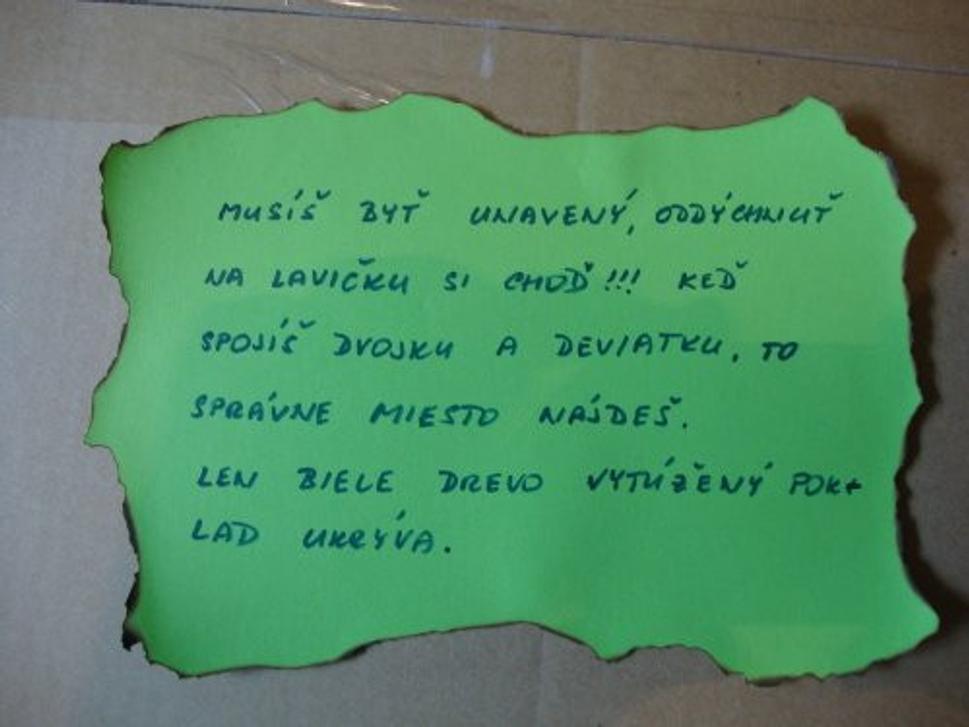 MUSÍŠ BYŤ UNAVENÝ, ODDÝCHNUŤ
NA LAVIČKU SI CHOĎ!!! KEĎ
SPOJÍŠ DVOJKU A DEVIATKU, TO
SPRÁVNE MIESTO NÁJDEŠ.
LEN BIELE DREVO VYTÚŽENÝ POK+
LAD UKRÝVA.